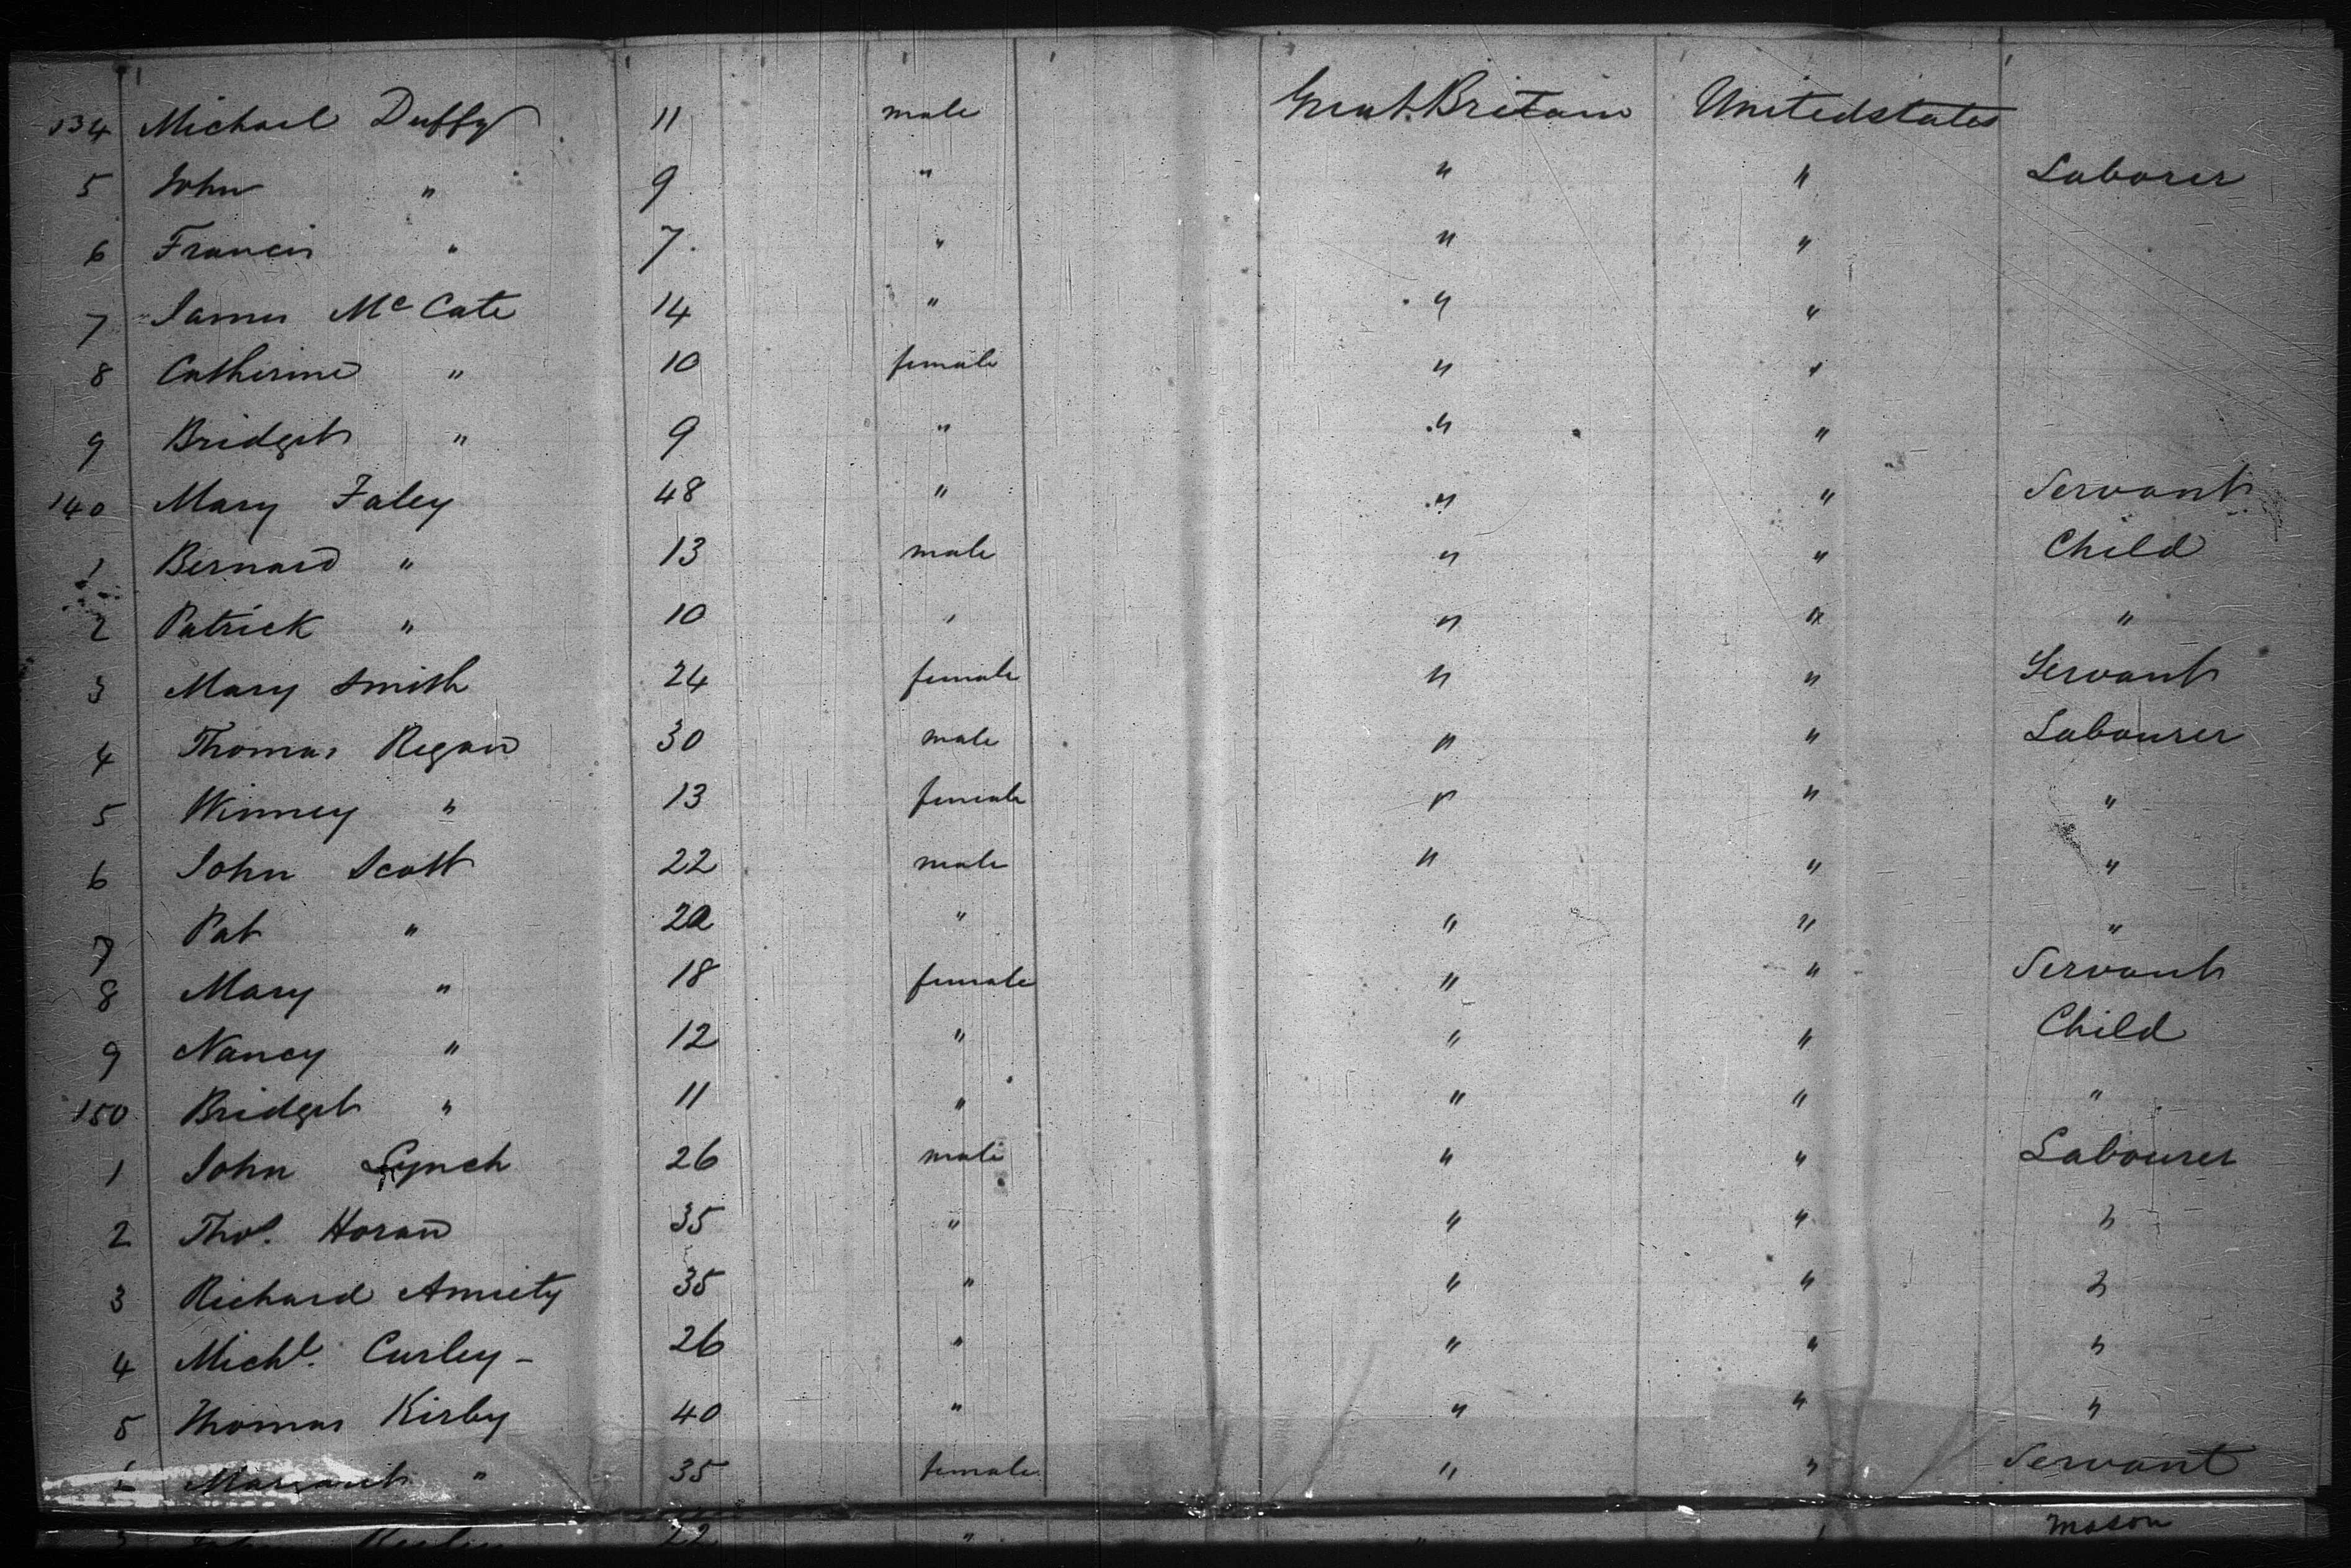 134 Michael Duffy 11 male Great Britain United states
5 John " 9 " " " Laborer
6 Francis " 7. " " "
7 James Mc Cate 14 " " "
8 Catherine " 10 female " "
9 Bridget " 9 " " "
140 Mary Faley 48 " " " Servant
1 Bernard " 13 male " " Child
2 Patrick " 10 " " " "
3 Mary Smith 24 female " " Servant
4 Thomas Regan 30 male " " Labourer
5 Winney " 13 female " " "
6 John Scott 22 male " " "
7 Pat " 20 " " " "
8 Mary " 18 female " " Servant
9 Nancy " 12 " " " Child
150 Bridget " 11 " " " "
1 John Lynch 26 male " " Labourer
2 Thos. Horan 35 " " " "
3 Richard 35 " " " "
4 Michl. Curley - 26 " " " "
5 Thomas Kirby 40 " " " "
Margaret " 35 female " " Servant
22 " " Mason